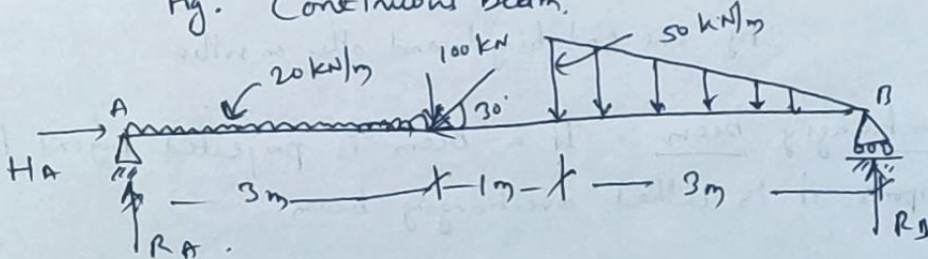 Fig. Continuous Beam.
20 kN/m
100 kN
50 kN/m
A
30°
B
HA
3m
1m
3m
RA.
RB